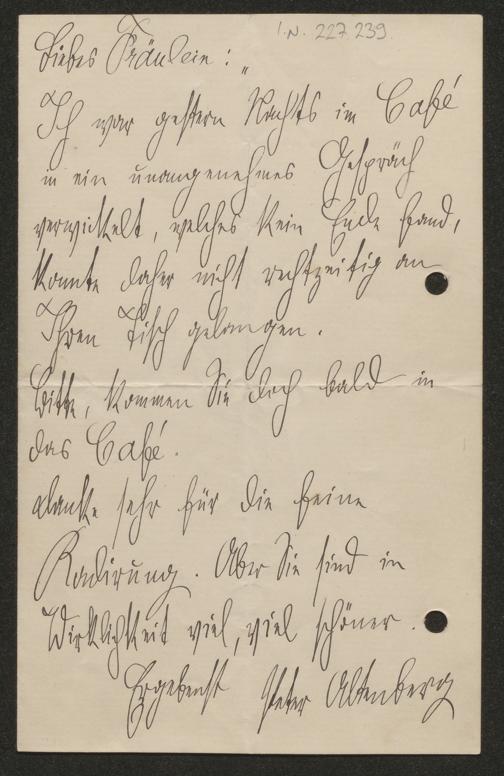 I.N. 227.239.
Liebes Fräulein:
Ich war gestern Nachts im Café
in ein unangenehmes Gespräch
verwickelt, welches kein Ende fand,
konnte daher nicht rechtzeitig an
Ihren Tisch gelangen.
Bitte, kommen Sie doch bald in
das Café.
Danke sehr für die feine
Radirung. Aber Sie sind in
Wirklichkeit viel, viel schöner.
Ergebenst Peter Altenberg